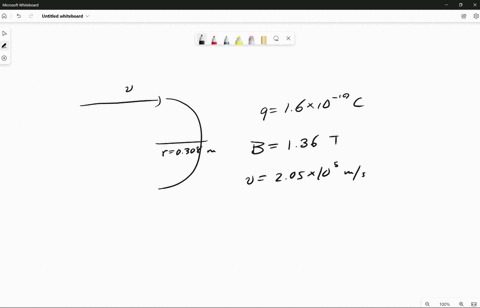 Microsoft Whiteboard
Untitled whiteboard
v
q = 1.6 × 10⁻¹⁹ C
r=0.308 m
B = 1.36 T
v = 2.05 × 10⁵ m/s
100%